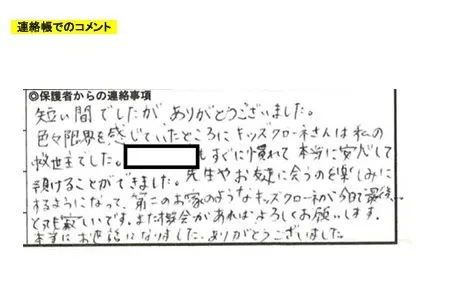 連絡帳でのコメント
◎保護者からの連絡事項
短い間でしたが、ありがとうございました。
色々限界を感じていたところにキッズクローネさんは私の
救世主でした。 もすぐに慣れて本当に安心して
預けることができました。先生やお友達に会うのを楽しみに
するようになって、第二のお家のようなキッズクローネが今日で最後…
とても寂しいです。また機会があればよろしくお願いします。
本当にお世話になりました。ありがとうございました。